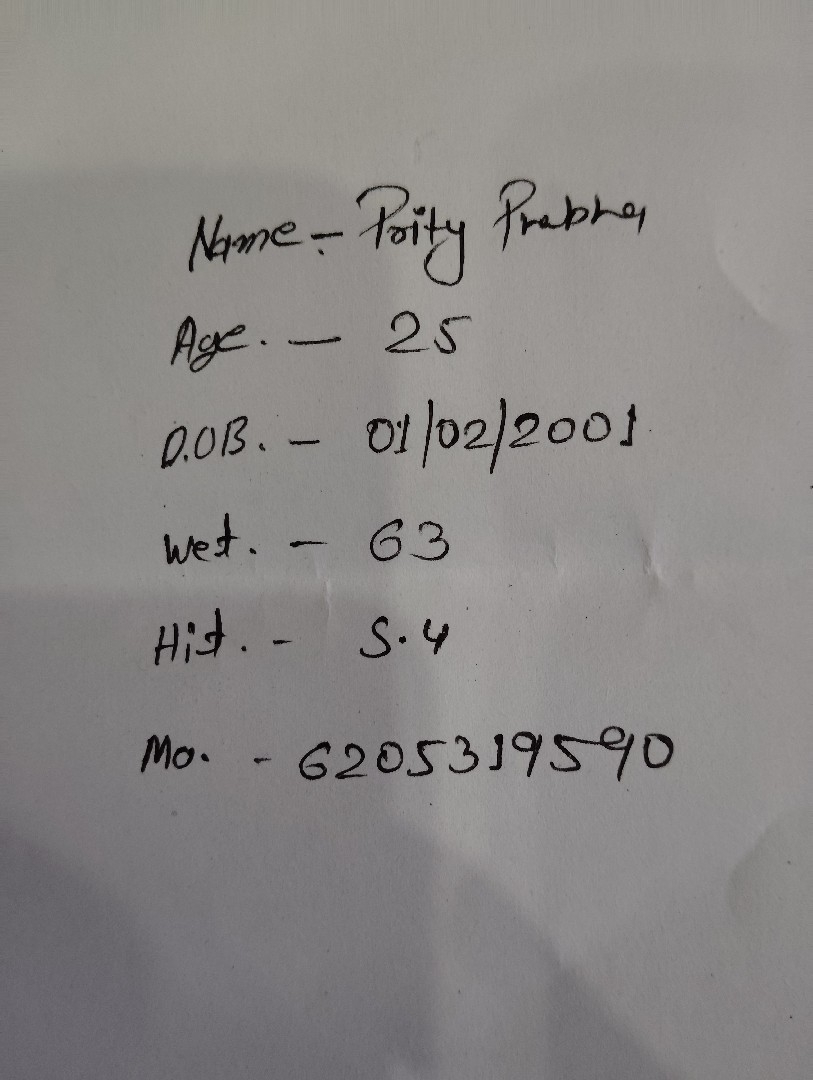 Name - Prity Prabha
Age. - 25
D.O.B. - 01/02/2001
Wet. - 63
Hit. - 5.4
Mo. - 6205319590